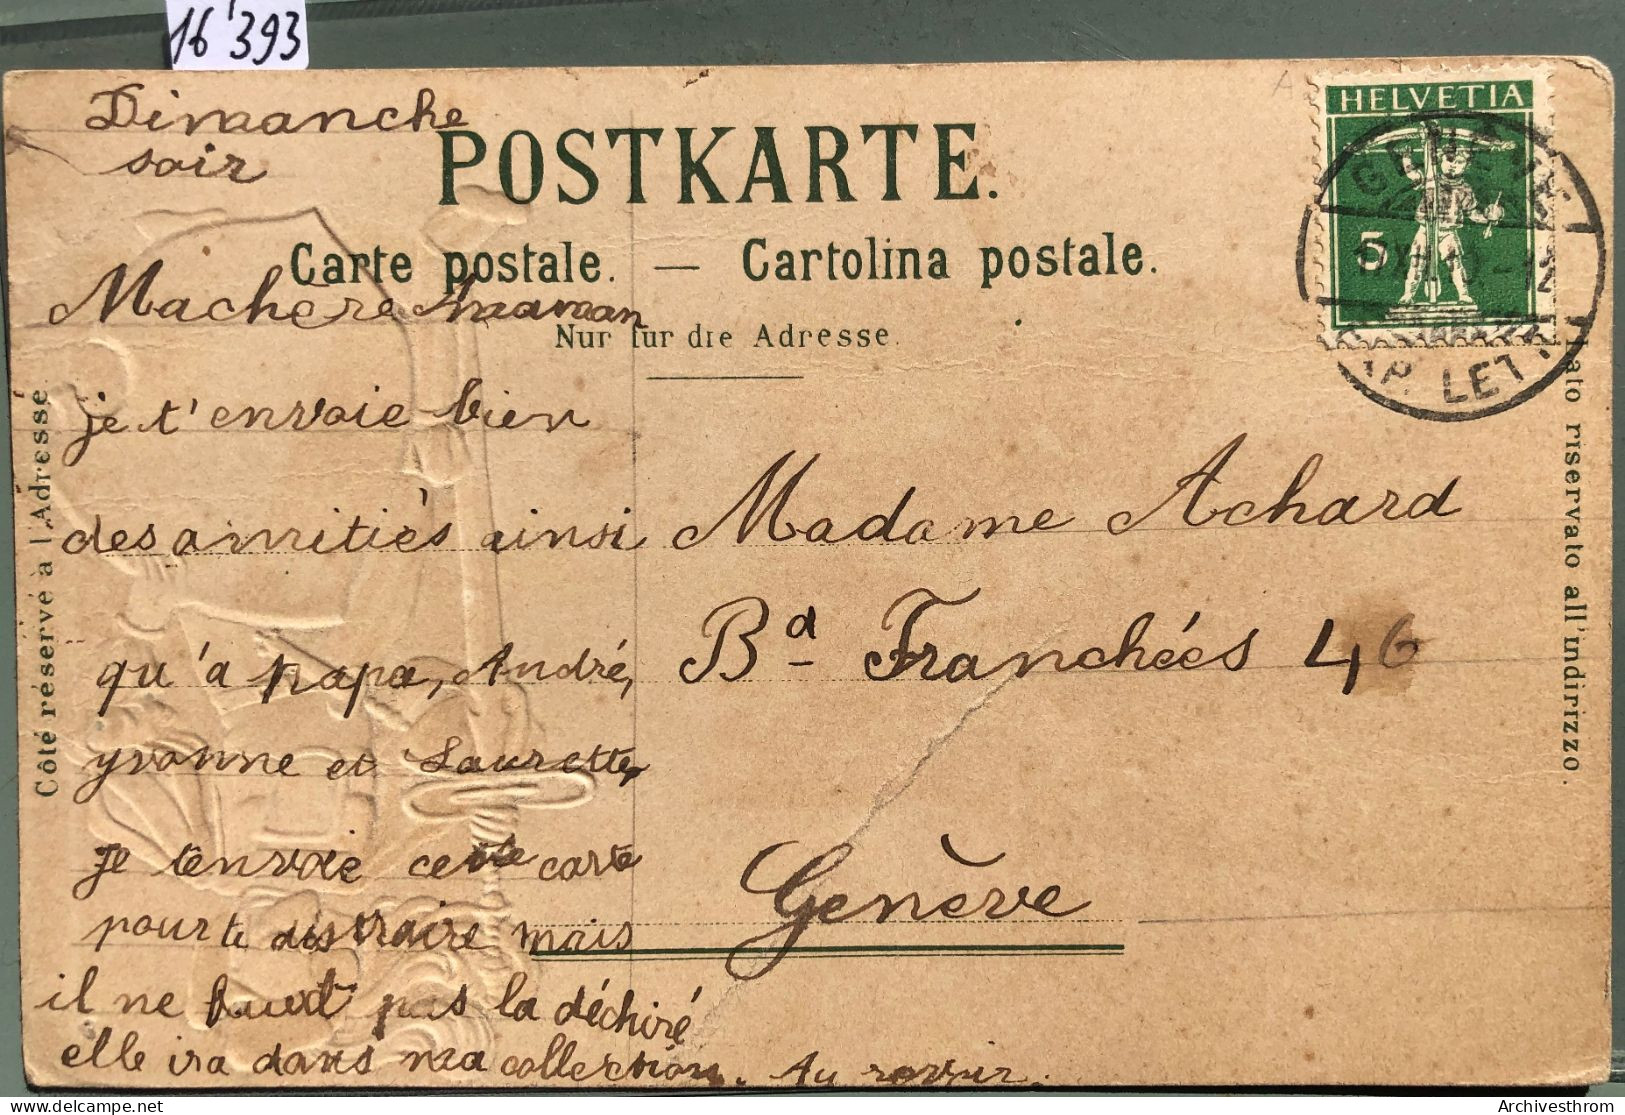 16'393
Dimanche
soir
POSTKARTE.
Carte postale. — Cartolina postale.
Nur für die Adresse.
HELVETIA
5
GENÈVE
LET
Côté réservé à l'Adresse.
Lato riservato all'indirizzo.
Machère maman
je t'envoie bien
des amitiés ainsi
qu'à papa, André,
yvonne et Laurette,
je tenvoie cette carte
pour te distraire mais
il ne faut pas la déchiré
elle ira dans ma collection. Au revoir.
Madame Achard
Bd Franchées 46
Genève
Archivesthrom
delcampe.net